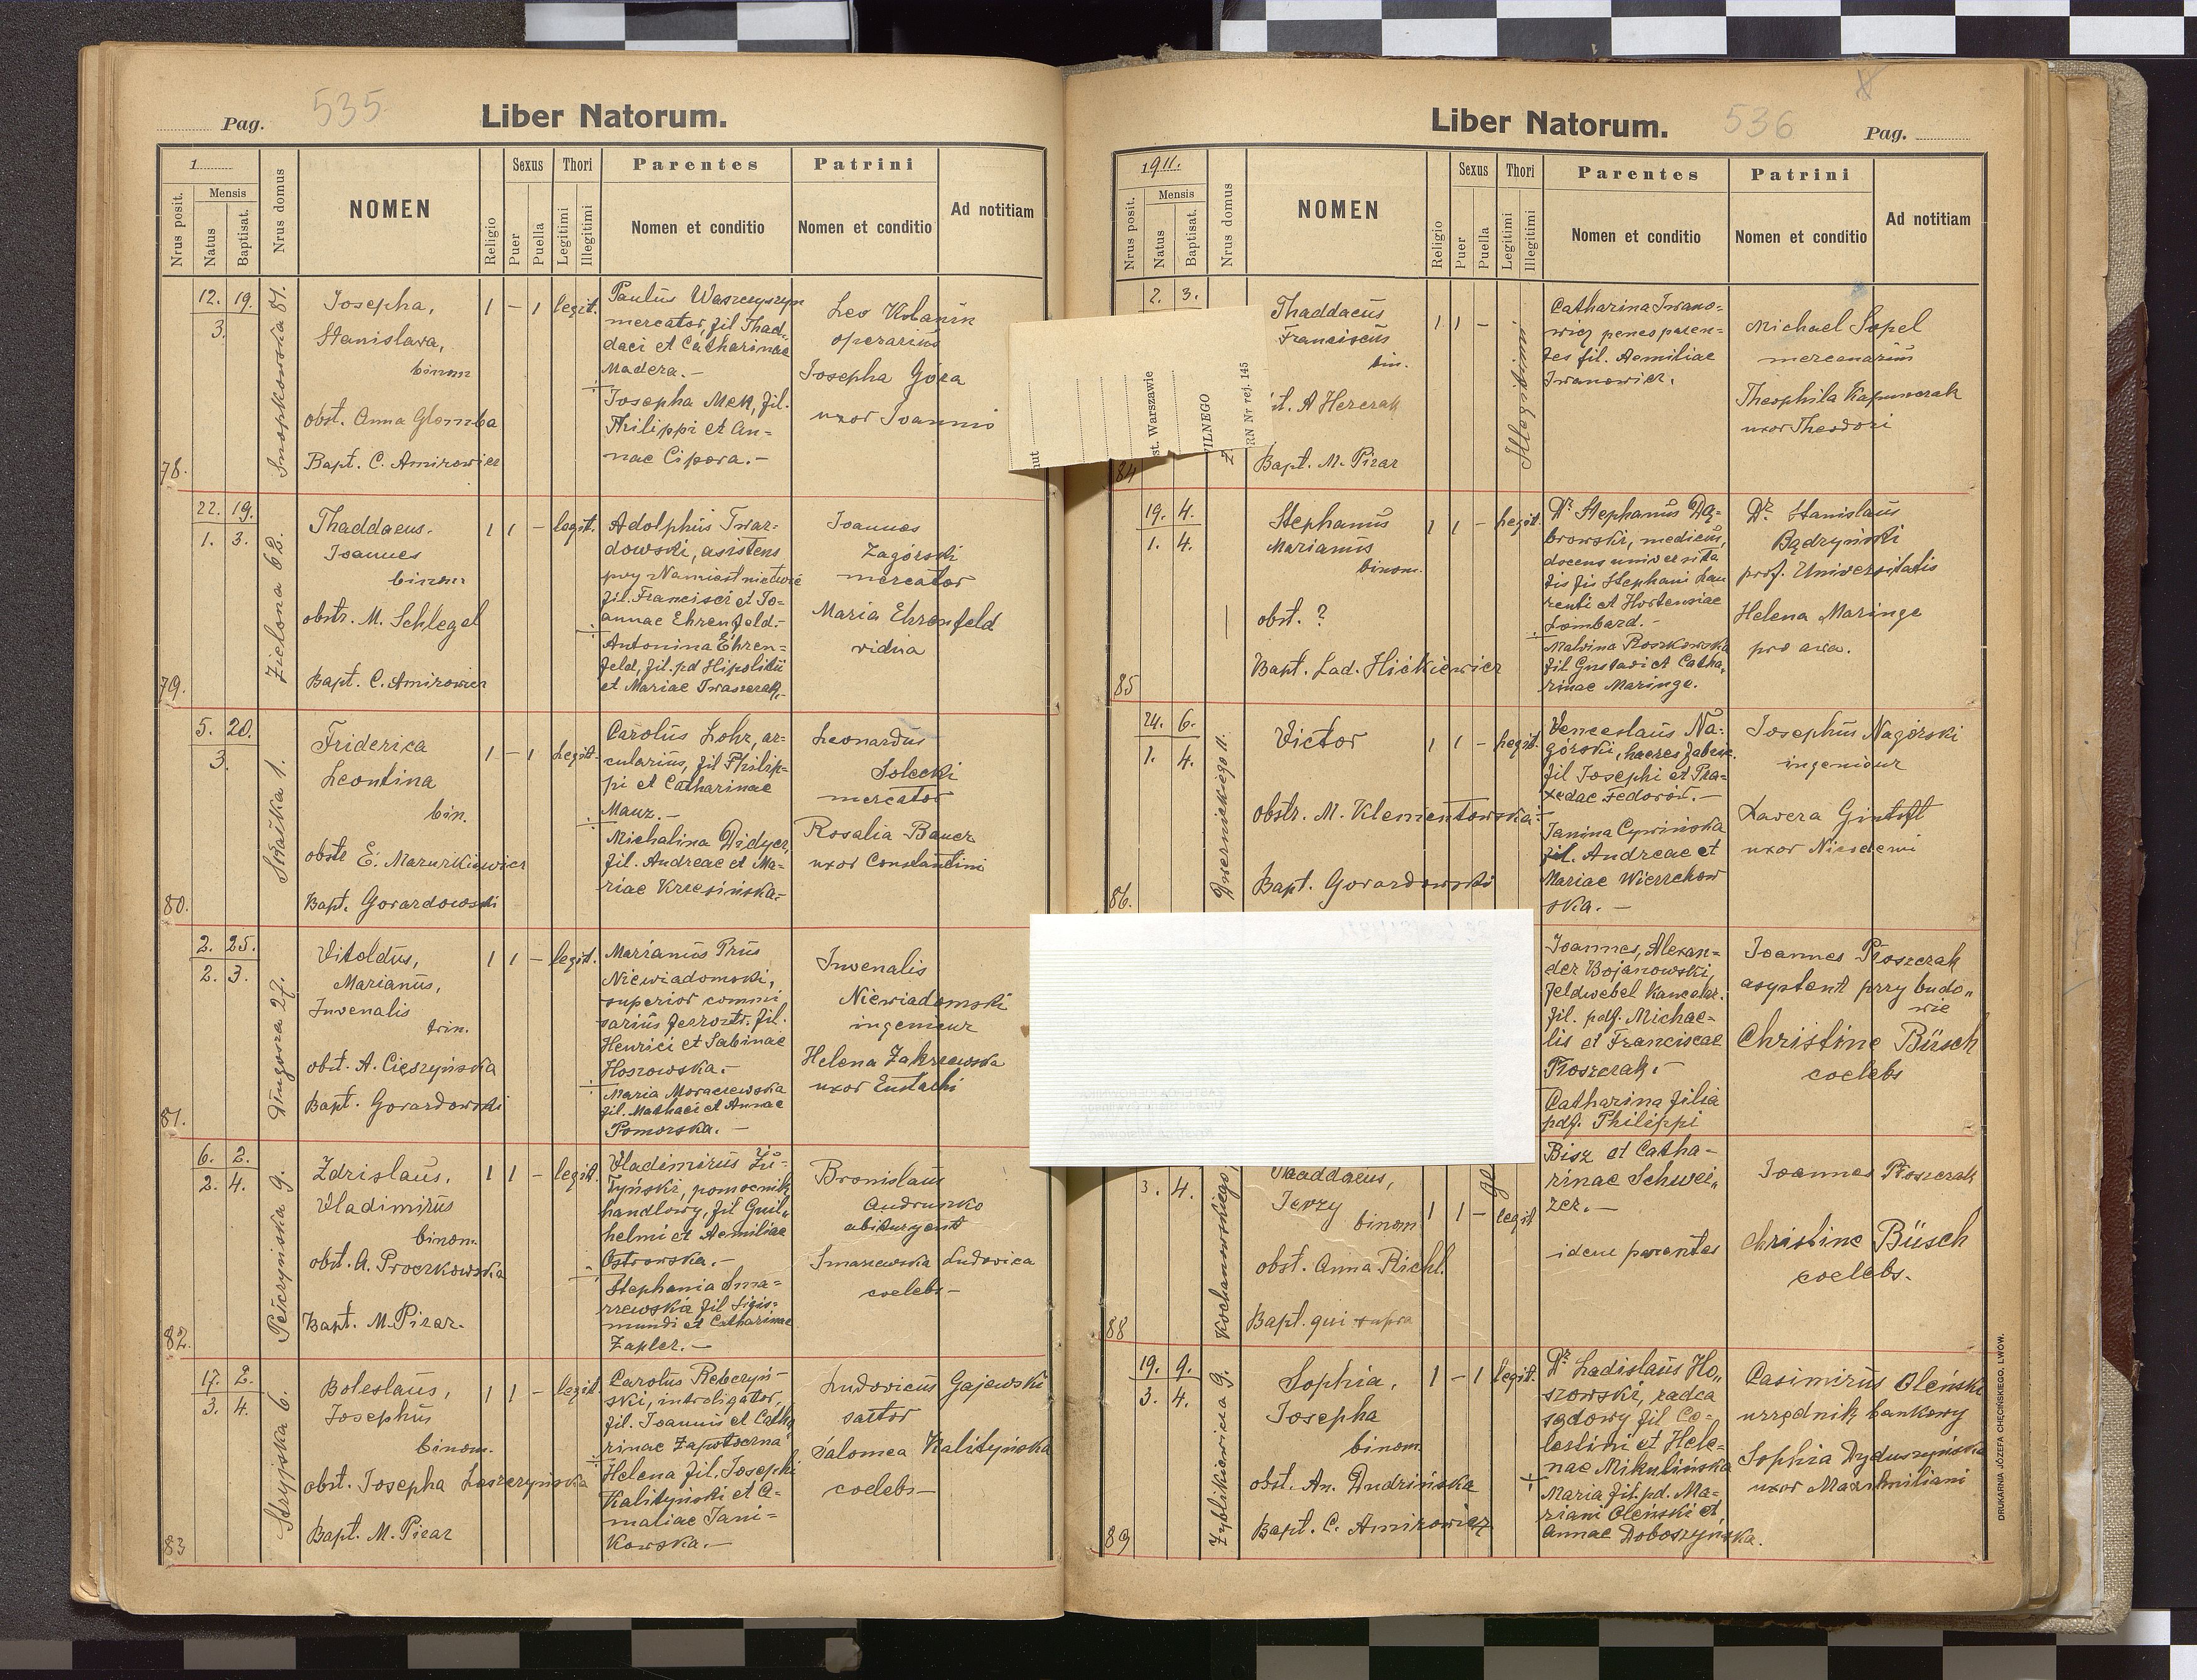 Pag. 535 Liber Natorum.
1
Nrus posit.
Mensis
Natus
Baptisat.
Nrus domus
NOMEN
Religio
Sexus
Puer
Puella
Thori
Legitimi
Illegitimi
Parentes
Nomen et conditio
Patrini
Nomen et conditio
Ad notitiam
78.
12. 19.
3.
Josepha,
Stanislava,
binom
obst. Anna Glomba
Bapt. C. Amirowicz
1 – 1 legit.
Paulus Waszczyszyn
mercator, fil Thad-
daei et Catharinae
Madera.–
Josepha Mek, fil.
Philippi et An-
nae Cipora.–
Leo Kolanin
operarius
Josepha Góra
uxor Joannis
79.
22. 19.
1. 3.
Zielona 62.
Thaddaeus.
Joannes
binom
obstr. M. Schlegel
Bapt. C. Amirowicz
1 1 – legit.
Adolphus Twar-
dowski, asistens
przy Namiestnictwie
fil. Francisci et Jo-
annae Ehrenfeld.–
Antonina Ehren-
feld, fil. pd Hipolitii
et Mariae
Joannes
Zagórski
mercator
Maria Ehrenfeld
vidua
80.
5. 20.
3.
Friderica
Leontina
bin.
obstr E. Mazurkiewicz
Bapt. Gorazdowski
1 – 1 Legit.
Carolus Lohr, ar-
cularius, fil Philip-
pi et Catharinae
Manz.–
Michalina Didycz,
fil. Andreae et Ma-
riae Krzesińska.–
Leonardus
Solecki
mercator
Rosalia Bauer
uxor Constantini
81.
2. 25.
2. 3.
Vitoldus,
Marianus,
Juvenalis
trin.
obst. A. Cięszyńska
Bapt. Gorazdowski
1 1 – legit.
Marianus Prus
Niewiadomski,
superior commi
sarius ferrostr. fil.
Henrici et Sabinae
Hoszowska.–
Maria Moraczewska
fil. Mathaei et Annae
Pomorska.–
Juvenalis
Niewiadomski
ingenieur
Helena Zakrzewska
uxor Eustachi
82.
6. 2.
2. 4.
Pełczyńska 9.
Zdzislaus,
Vladimirus
binom.
obst. A. Proczkowska
Bapt. M. Pizar.
1 1 – legit.
Vladimirus Żu-
łyński, pomocnik
handlowy, fil Guil-
helmi et Aemiliae
Ostrowska.–
Stephania Sma-
rzewska fil Sigis-
mundi et Catharinae
Zapler.–
Bronislaus
Andrunko
abiturgent
Smarzewska Ludovica
coelebs–
83
17. 2.
3. 4.
Stryjska 6.
Boleslaus,
Josephus
binom.
obst. Josepha Leszczyńska
Bapt. M. Pizar
1 1 – legit
Carolus Rebczyń-
ski, introligator,
fil. Joannis et Catha
rinae
Helena fil. Josephi
Kalityński et A-
maliae Jani-
kowska.–
Ludovicus Gajewski
sartor
Salomea Kalityńska
coelebs–
Liber Natorum. 536 Pag.
1911.
Nrus posit.
Mensis
Natus
Baptisat.
Nrus domus
NOMEN
Religio
Sexus
Puer
Puella
Thori
Legitimi
Illegitimi
Parentes
Nomen et conditio
Patrini
Nomen et conditio
Ad notitiam
st. Warszawie
RN Nr rej. 145
84
2. 3.
Thaddaeus
Franciscus
bin.
A Herczak
Bapt. M. Pizar
1 1 –
Illegitimi
Catharina Iwano-
wicz penes paren-
tes fil. Aemiliae
Iwanowicz.
Michael Sopel
mercenarius
Theophila Kapuszczak
uxor Theodori
85
19. 4.
1. 4.
Stephanus
Marianus
binom.
obst. ?
Bapt. Lad. Hićkiewicz
1 1 – Legit.
Dr Stephanus Dą-
browski, medicus,
docens universita
tis fis Stephani Lau
renti et Hortensiae
Lombard.–
Malvina Roszkowska
fil Gustavi et Catha-
rinae Maringe.
Dr Stanislaus
Bądzyński
prof. Universitatis
Helena Maringe
pro avia.
86.
24. 6.
1. 4.
Victor
obstr. M. Klementowska
Bapt. Gorazdowski
1 1 – Legit.
Venceslaus Na-
górski, haeres fabric.
fil Josephi et Pra-
xedae Fedorów.–
Janina Cywińska
fil. Andreae et
Mariae Wierzchow
ska.–
Josephus Nagórski
ingenieur
Xavera Gintoft
uxor Nicodemi
Joannes, Alexan-
der Bojanowski,
feldwebel kancelar.
fil. pdf. Michae-
lis et Franciscae
Płoszczak.–
Catharina filia
pdf. Philippi
Bisz et Catha-
rinae Schwei-
zer.–
Joannes Płoszczak
asystent przy budo-
wie
Christine Büsch
coelebs
88
3. 4.
Kochanowskiego
Thaddaeus,
Jerzy
binom
obst. Anna Richl.
Bapt. qui supra
1 1 – legit
idem parentes
Joannes Płoszczak
Christine Büsch
coelebs.
89
19. 9.
3. 4.
Zyblikiewicza 9.
Sophia,
Josepha
binom
obst. An. Dudzińska
Bapt. C. Amirowicz
1 – 1 legit.
Dr Ladislaus Ho-
szowski, radca
sądowy fil Co-
lestini et Hele-
nae Mikulińska
Maria fil. pd. Ma-
riani Oleński et
Annae Doboszyńska.
Casimirus Oleński
urzędnik bankowy
Sophia Dyduszyńska
uxor Maximiliani
DRUKARNIA JÓZEFA CHĘCIŃSKIEGO. LWÓW.